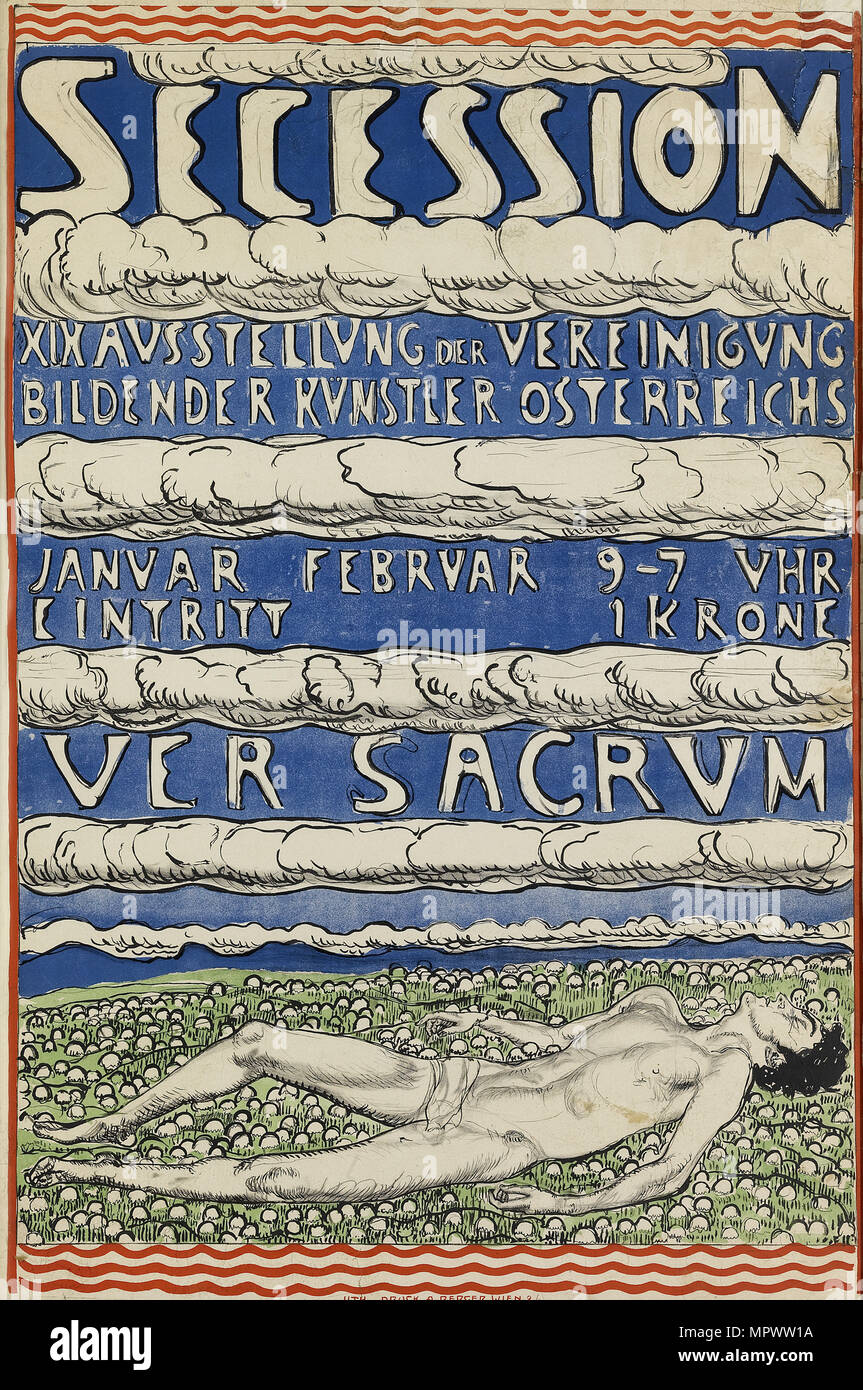 SECESSION
XIX AVSSTELLVNG DER VEREINIGVNG
BILDENDER KÜNSTLER ÖSTERREICHS
JANVAR FEBRVAR 9-7 VHR
EINTRITT 1 KRONE
VER SACRVM
DRVCK A. BERGER WIEN
alamy
Image ID: MPWW1A
www.alamy.com